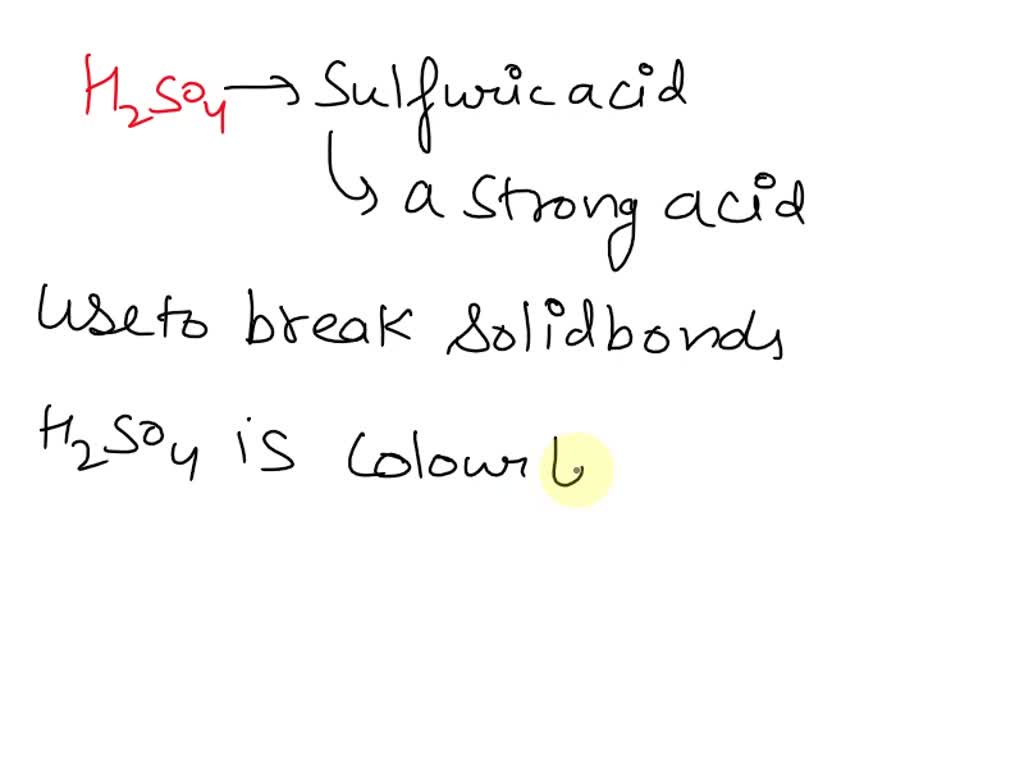 H₂SO₄ → Sulfuric acid
↳ a strong acid
Use to break solid bonds
H₂SO₄ is colourl